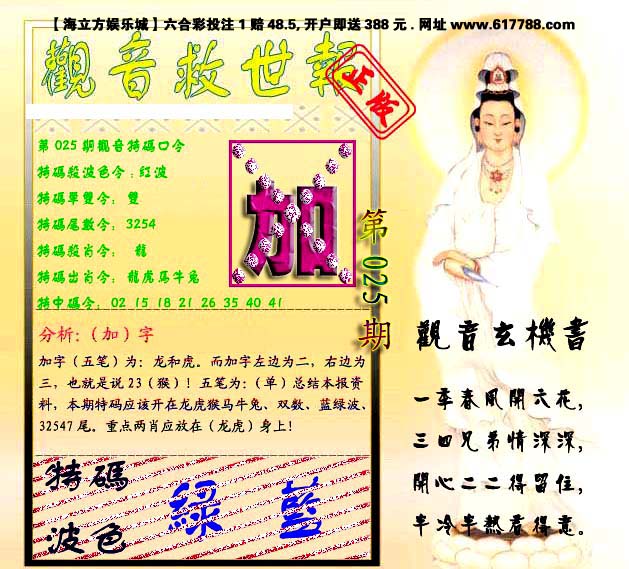 【海立方娱乐城】六合彩投注1赔48.5,开户即送388元.网址www.617788.com
觀音救世報
正版
第025期觀音特碼口令
特碼殺波色令:紅波
特碼單雙令: 雙
特碼尾數令: 3254
特碼殺肖令: 龍
特碼出肖令: 龍虎馬牛兔
特中碼令: 02 15 18 21 26 35 40 41
加
第025期
分析:(加)字
加字(五笔)为: 龙和虎。而加字左边为二, 右边为
三, 也就是说23(猴)! 五笔为:(单)总结本报资
料, 本期特码应该开在龙虎猴马牛兔、双数、蓝绿波、
32547尾。重点两肖应放在(龙虎)身上!
特碼
波色
綠 藍
觀音玄機書
一季春風開六花,
三四兄弟情深深,
開心二二得留住,
半冷半熱看得意。